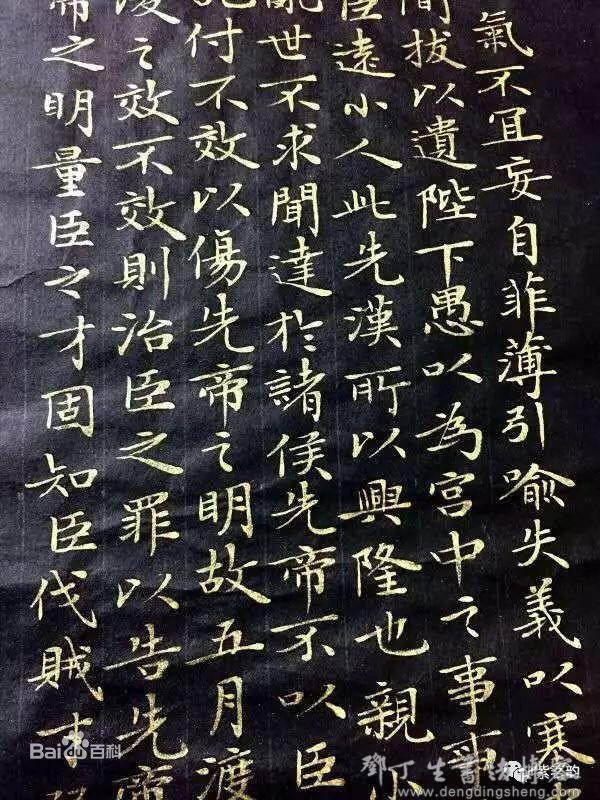 氣不宜妄自菲薄引喻失義以塞
簡拔以遺陛下愚以為宮中之事事
臣遠小人此先漢所以興隆也親小
亂世不求聞達於諸侯先帝不以臣
付不效以傷先帝之明故五月渡
復之效不效則治臣之罪以告先帝
帝之明量臣之才固知臣伐賊才
Bai百科
鄧丁生書法
www.dengdingsheng.com